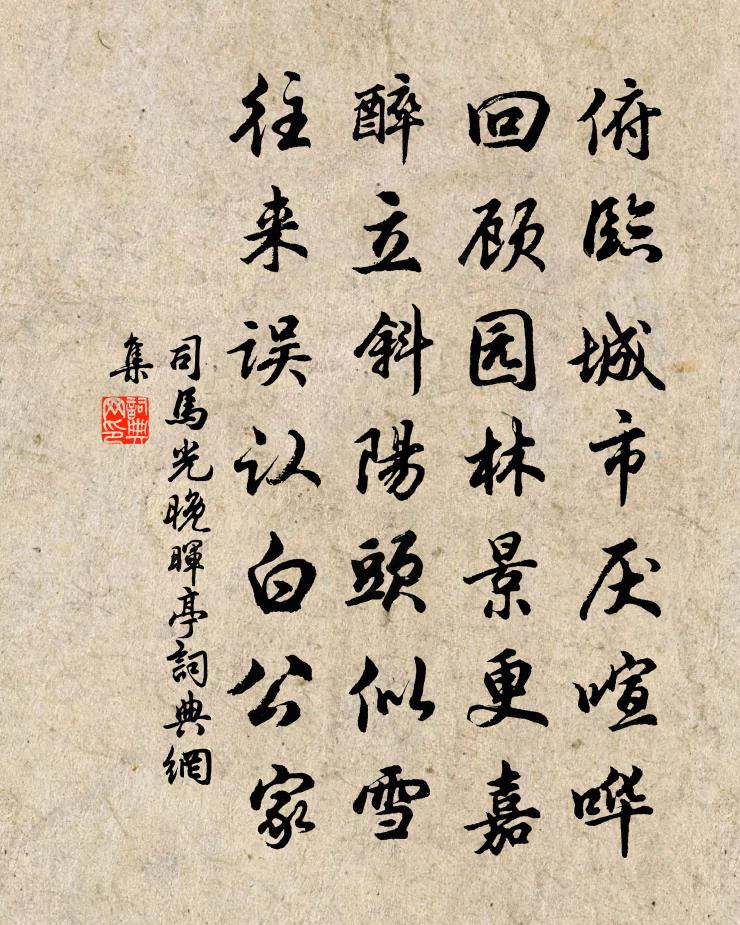 俯臨城市厌喧哗
回顾园林景更嘉
醉立斜陽頭似雪
往来误认白公家
司馬光晚暉亭詞典網
集
詞典
网印